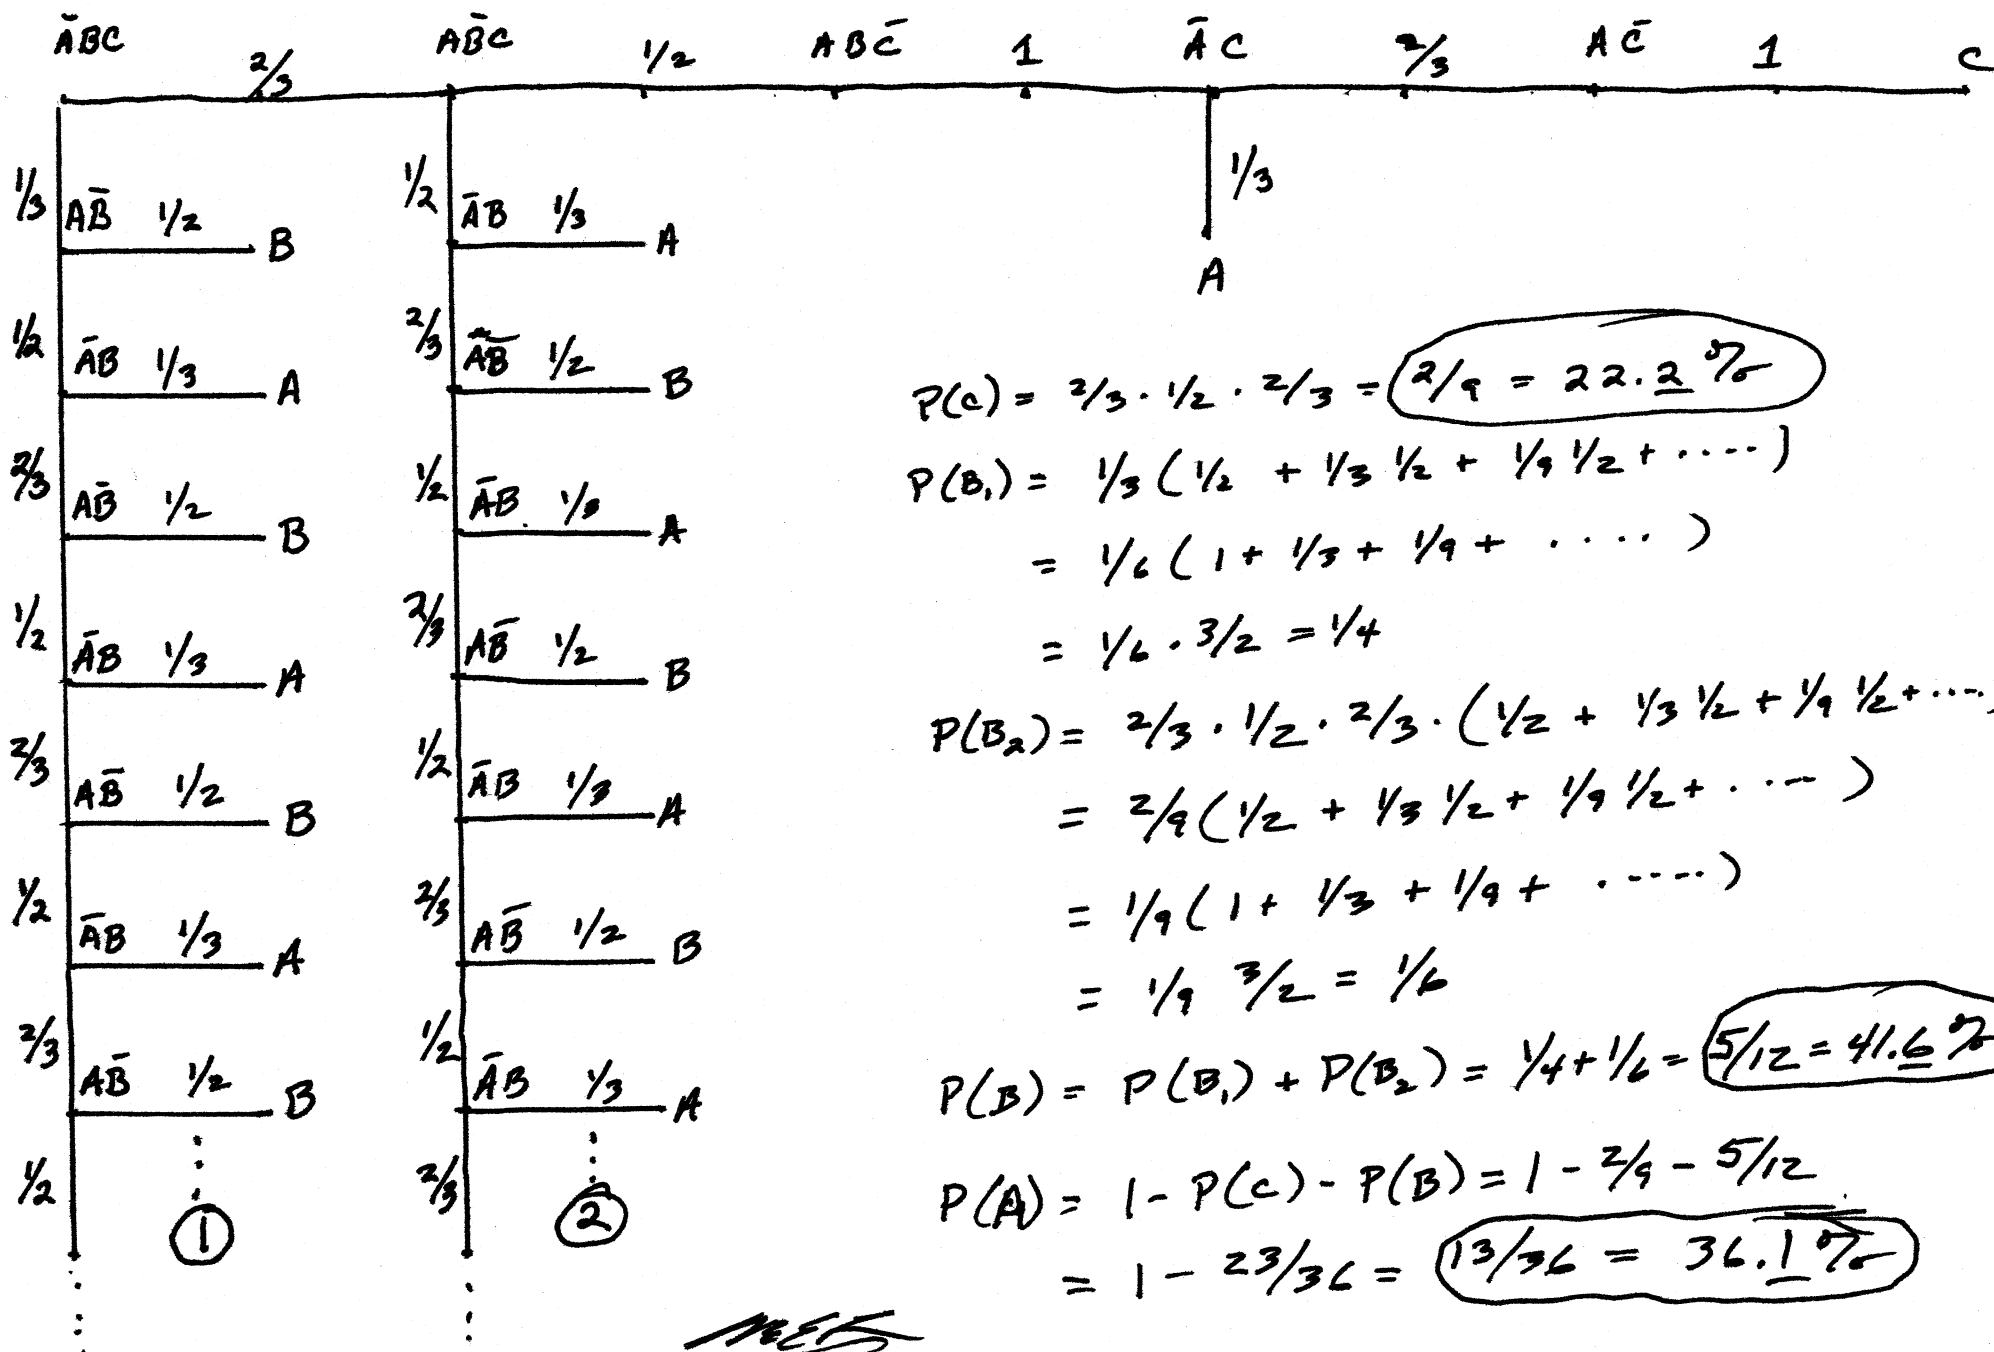 ĀBC 2/3 AB̄C 1/2 ABC̄ 1 ĀC 2/3 AC̄ 1 C
1/3 AB̄ 1/2 B
1/2 ĀB 1/3 A
2/3 AB̄ 1/2 B
1/2 ĀB 1/3 A
2/3 AB̄ 1/2 B
1/2 ĀB 1/3 A
2/3 AB̄ 1/2 B
1/2
①
1/2 ĀB 1/3 A
2/3 AB̄ 1/2 B
1/2 ĀB 1/3 A
2/3 AB̄ 1/2 B
1/2 ĀB 1/3 A
2/3 AB̄ 1/2 B
1/2 ĀB 1/3 A
2/3
②
1/3
A
P(C) = 2/3 · 1/2 · 2/3 = 2/9 = 22.2 %
P(B₁) = 1/3 ( 1/2 + 1/3 1/2 + 1/9 1/2 + ····· )
= 1/6 ( 1 + 1/3 + 1/9 + ····· )
= 1/6 · 3/2 = 1/4
P(B₂) = 2/3 · 1/2 · 2/3 · ( 1/2 + 1/3 1/2 + 1/9 1/2 + ····· )
= 2/9 ( 1/2 + 1/3 1/2 + 1/9 1/2 + ····· )
= 1/9 ( 1 + 1/3 + 1/9 + ····· )
= 1/9 3/2 = 1/6
P(B) = P(B₁) + P(B₂) = 1/4 + 1/6 = 5/12 = 41.6 %
P(A) = 1 - P(C) - P(B) = 1 - 2/9 - 5/12
= 1 - 23/36 = 13/36 = 36.1 %